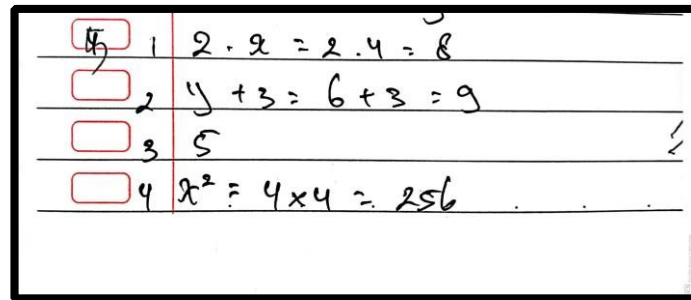 4) 1 2 . x = 2 . 4 = 8
2 y + 3 = 6 + 3 = 9
3 5
4 x² = 4 × 4 = 256